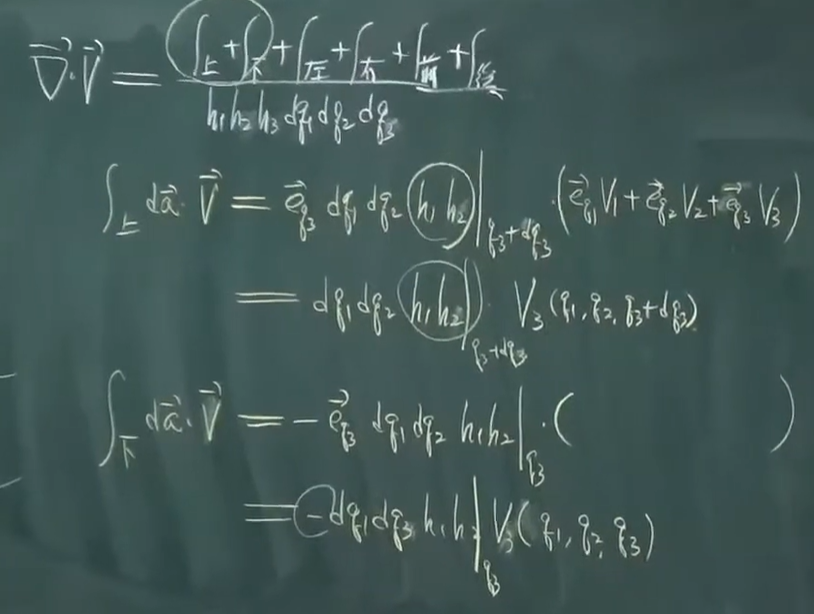 ∇⃗·V⃗ = (∫上 + ∫下 + ∫左 + ∫右 + ∫前 + ∫后) / (h₁h₂h₃ dq₁dq₂dq₃)
∫上 da⃗·V⃗ = e⃗q₃ dq₁ dq₂ (h₁h₂)|q₃+dq₃ ·(e⃗q₁V₁ + e⃗q₂V₂ + e⃗q₃V₃)
= dq₁ dq₂ (h₁h₂)|q₃+dq₃ · V₃(q₁, q₂, q₃+dq₃)
∫下 da⃗·V⃗ = − e⃗q₃ dq₁ dq₂ h₁h₂|q₃ ·( )
= − dq₁dq₃ h₁h₂|q₃ V₃(q₁, q₂, q₃)